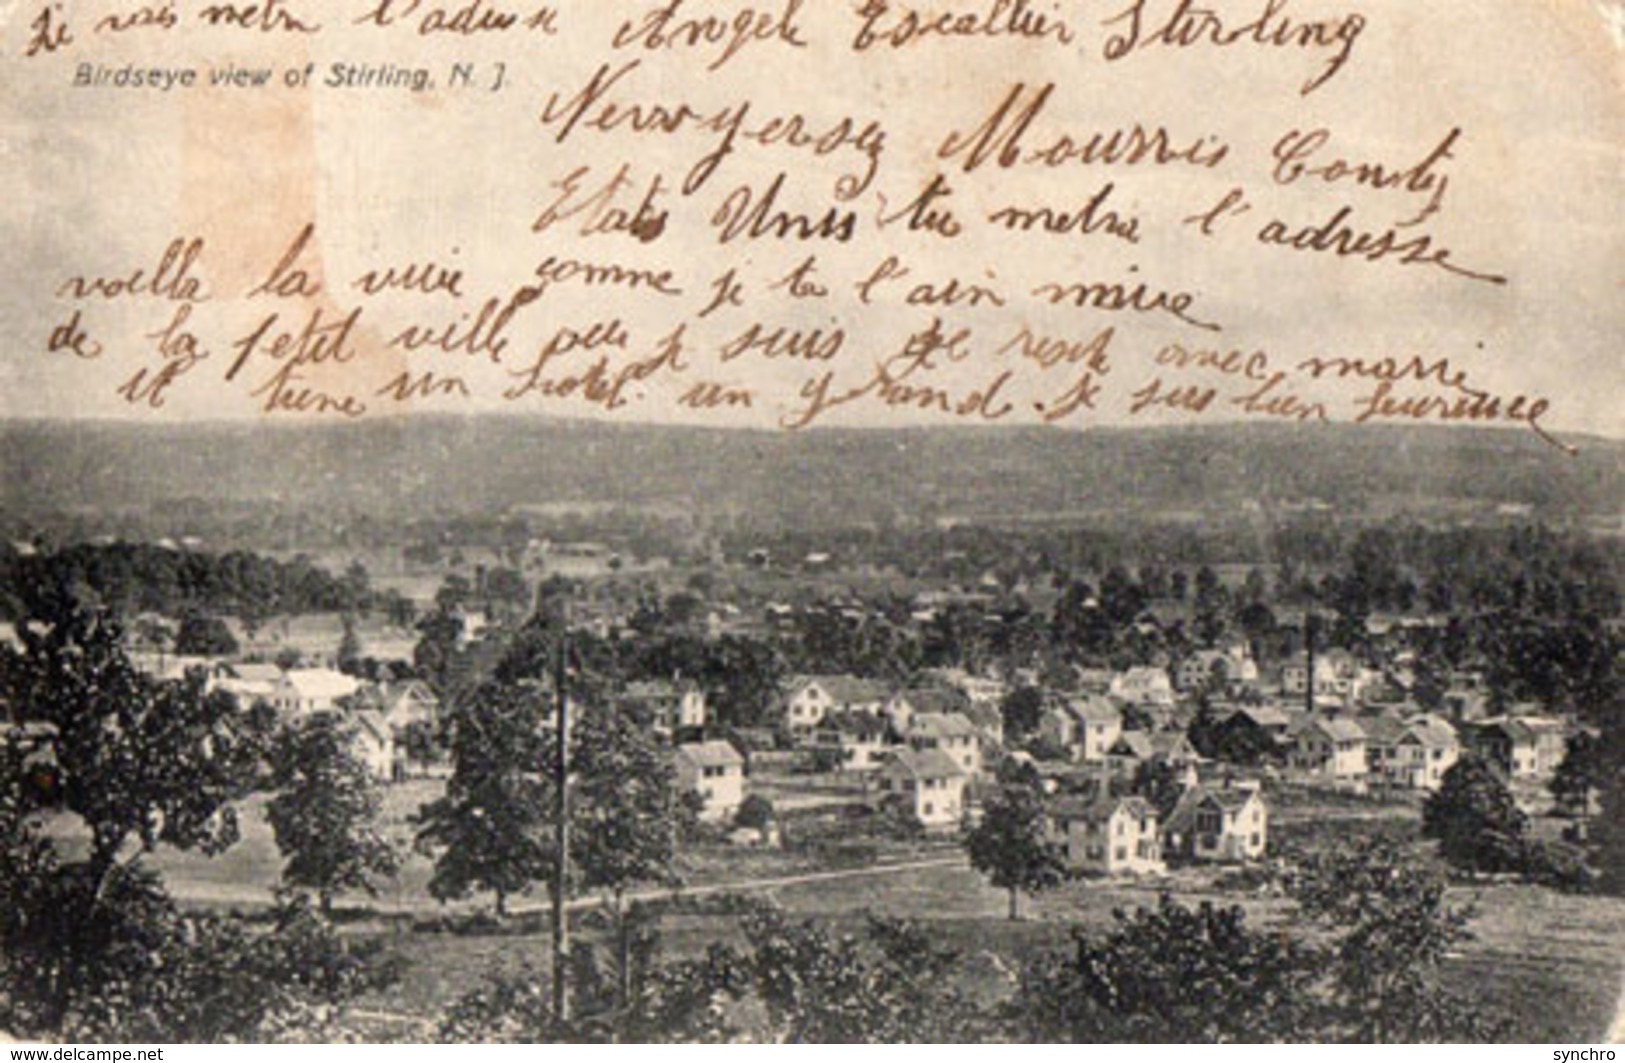 Je vais metre l'adresse Angele Escallier Stirling
Birdseye view of Stirling, N. J.
Newyersey Mourris Conty
Etats Unis tu metra l'adresse
voella la vuie comme je ta l'ain mive
de la petit ville ou je suis je reste avec marie
il tiene un hotel un grand. Je suis bien heureuse
www.delcampe.net
synchro